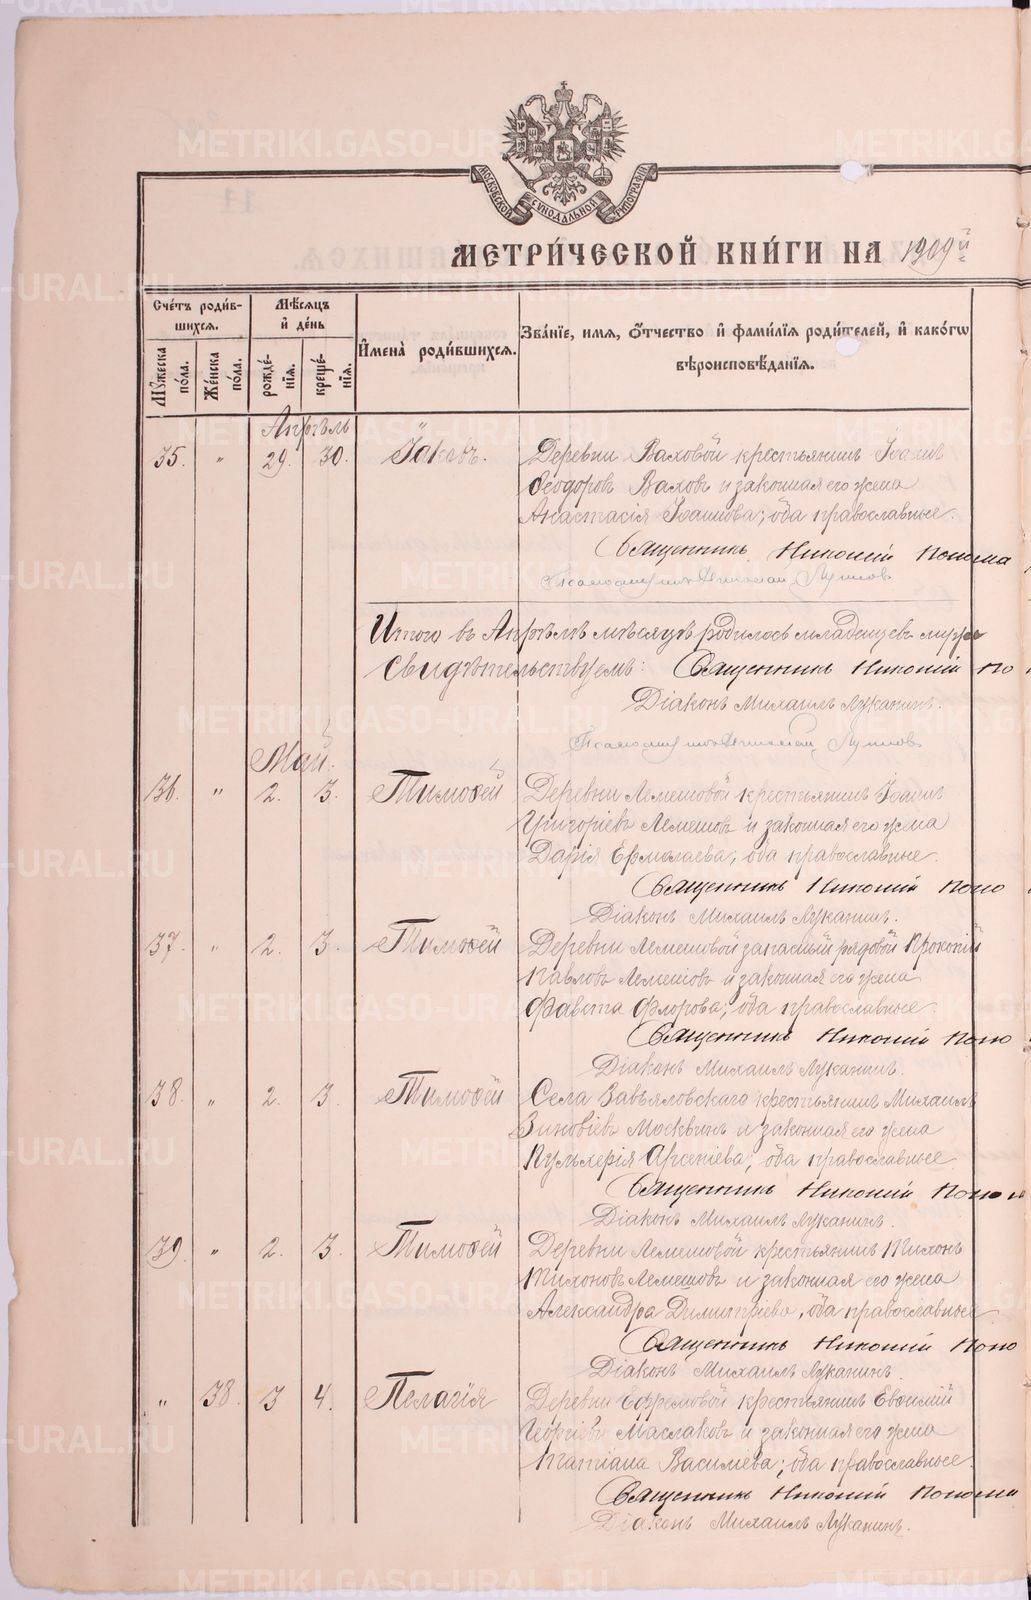 МОСКОВСКОЙ СѴНОДАЛЬНОЙ ТИПОГРАФІИ
МЕТРИ́ЧЕСКОЙ КНИ́ГИ НА 1909й
Сче́тъ роди́в-
шихся.
Мѣ́сяцъ
и҆ де́нь
И҆мена̀ роди́вшихся.
Зва́нїе, имя, ѻ҆́тчество и҆ фами́лїя роди́телей, и҆ како́гѡ
вѣроисповѣ́данїя.
Мꙋ́жеска
по́ла.
Же́нска
по́ла.
рожде́-
нїя.
креще́-
нїя.
Апрѣль
35. " 29. 30. Іаковъ. Деревни Ваховой крестьянинъ Іоаннъ
Ѳеодоровъ Ваховъ и законная его жена
Анастасія Іоаннова; оба православные.
Священникъ Никоній Понома
Псаломщикъ Николай Лупповъ
Итого въ Апрѣлѣ мѣсяцѣ родилось младенцевъ муже
Свидѣтельствуемъ: Священникъ Никоній По
Діаконъ Михаилъ Луканинъ.
Псаломщикъ Николай Лупповъ
Май.
36. " 2. 3. Тимоѳей Деревни Лемешовой крестьянинъ Іоаннъ
Григоріевъ Лемешовъ и законная его жена
Дарія Ермолаева; оба православные.
Священникъ Никоній Поно
Діаконъ Михаилъ Луканинъ.
37. " 2. 3. Тимоѳей Деревни Лемешовой запасный рядовой Прокопій
Павловъ Лемешовъ и законная его жена
Фавста Флорова; оба православные.
Священникъ Никоній Поно
Діаконъ Михаилъ Луканинъ.
38. " 2. 3. Тимоѳей Села Завьяловскаго крестьянинъ Михаилъ
Зиновіевъ Москвинъ и законная его жена
Пульхерія Арсеніева; оба православные
Священникъ Никоній Поно
Діаконъ Михаилъ Луканинъ.
39. " 2. 3. Тимоѳей Деревни Лемешовой крестьянинъ Тихонъ
Тихоновъ Лемешовъ и законная его жена
Александра Димитріева, оба православные
Священникъ Никоній Поно
Діаконъ Михаилъ Луканинъ.
" 38. 3 4. Пелагія Деревни Ефремовой крестьянинъ Евѳимій
Георгіевъ Маслаковъ и законная его жена
Татіана Василіева; оба православные.
Священникъ Никоній Пономи
Діаконъ Михаилъ Луканинъ.
METRIKI.GASO-URAL.RU